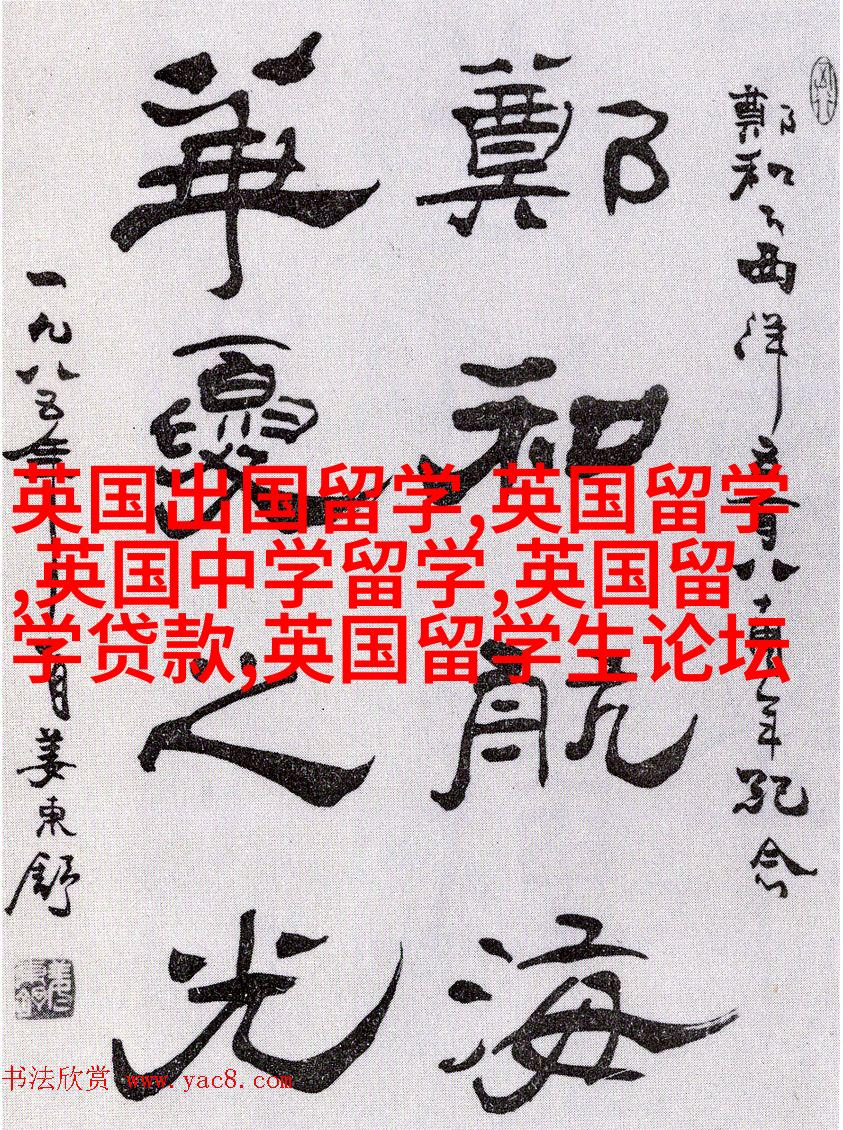 鄭和下西洋五百八十周年纪念
鄭和航海
華夏之光
一九八五年十一月姜東舒
英国出国留学,英国留学
,英国中学留学,英国留
学贷款,英国留学生论坛
书法欣赏 www.yac8.com